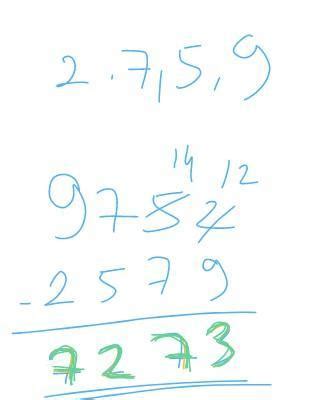 2.7,5,9
14 12
9752
-2579
7273